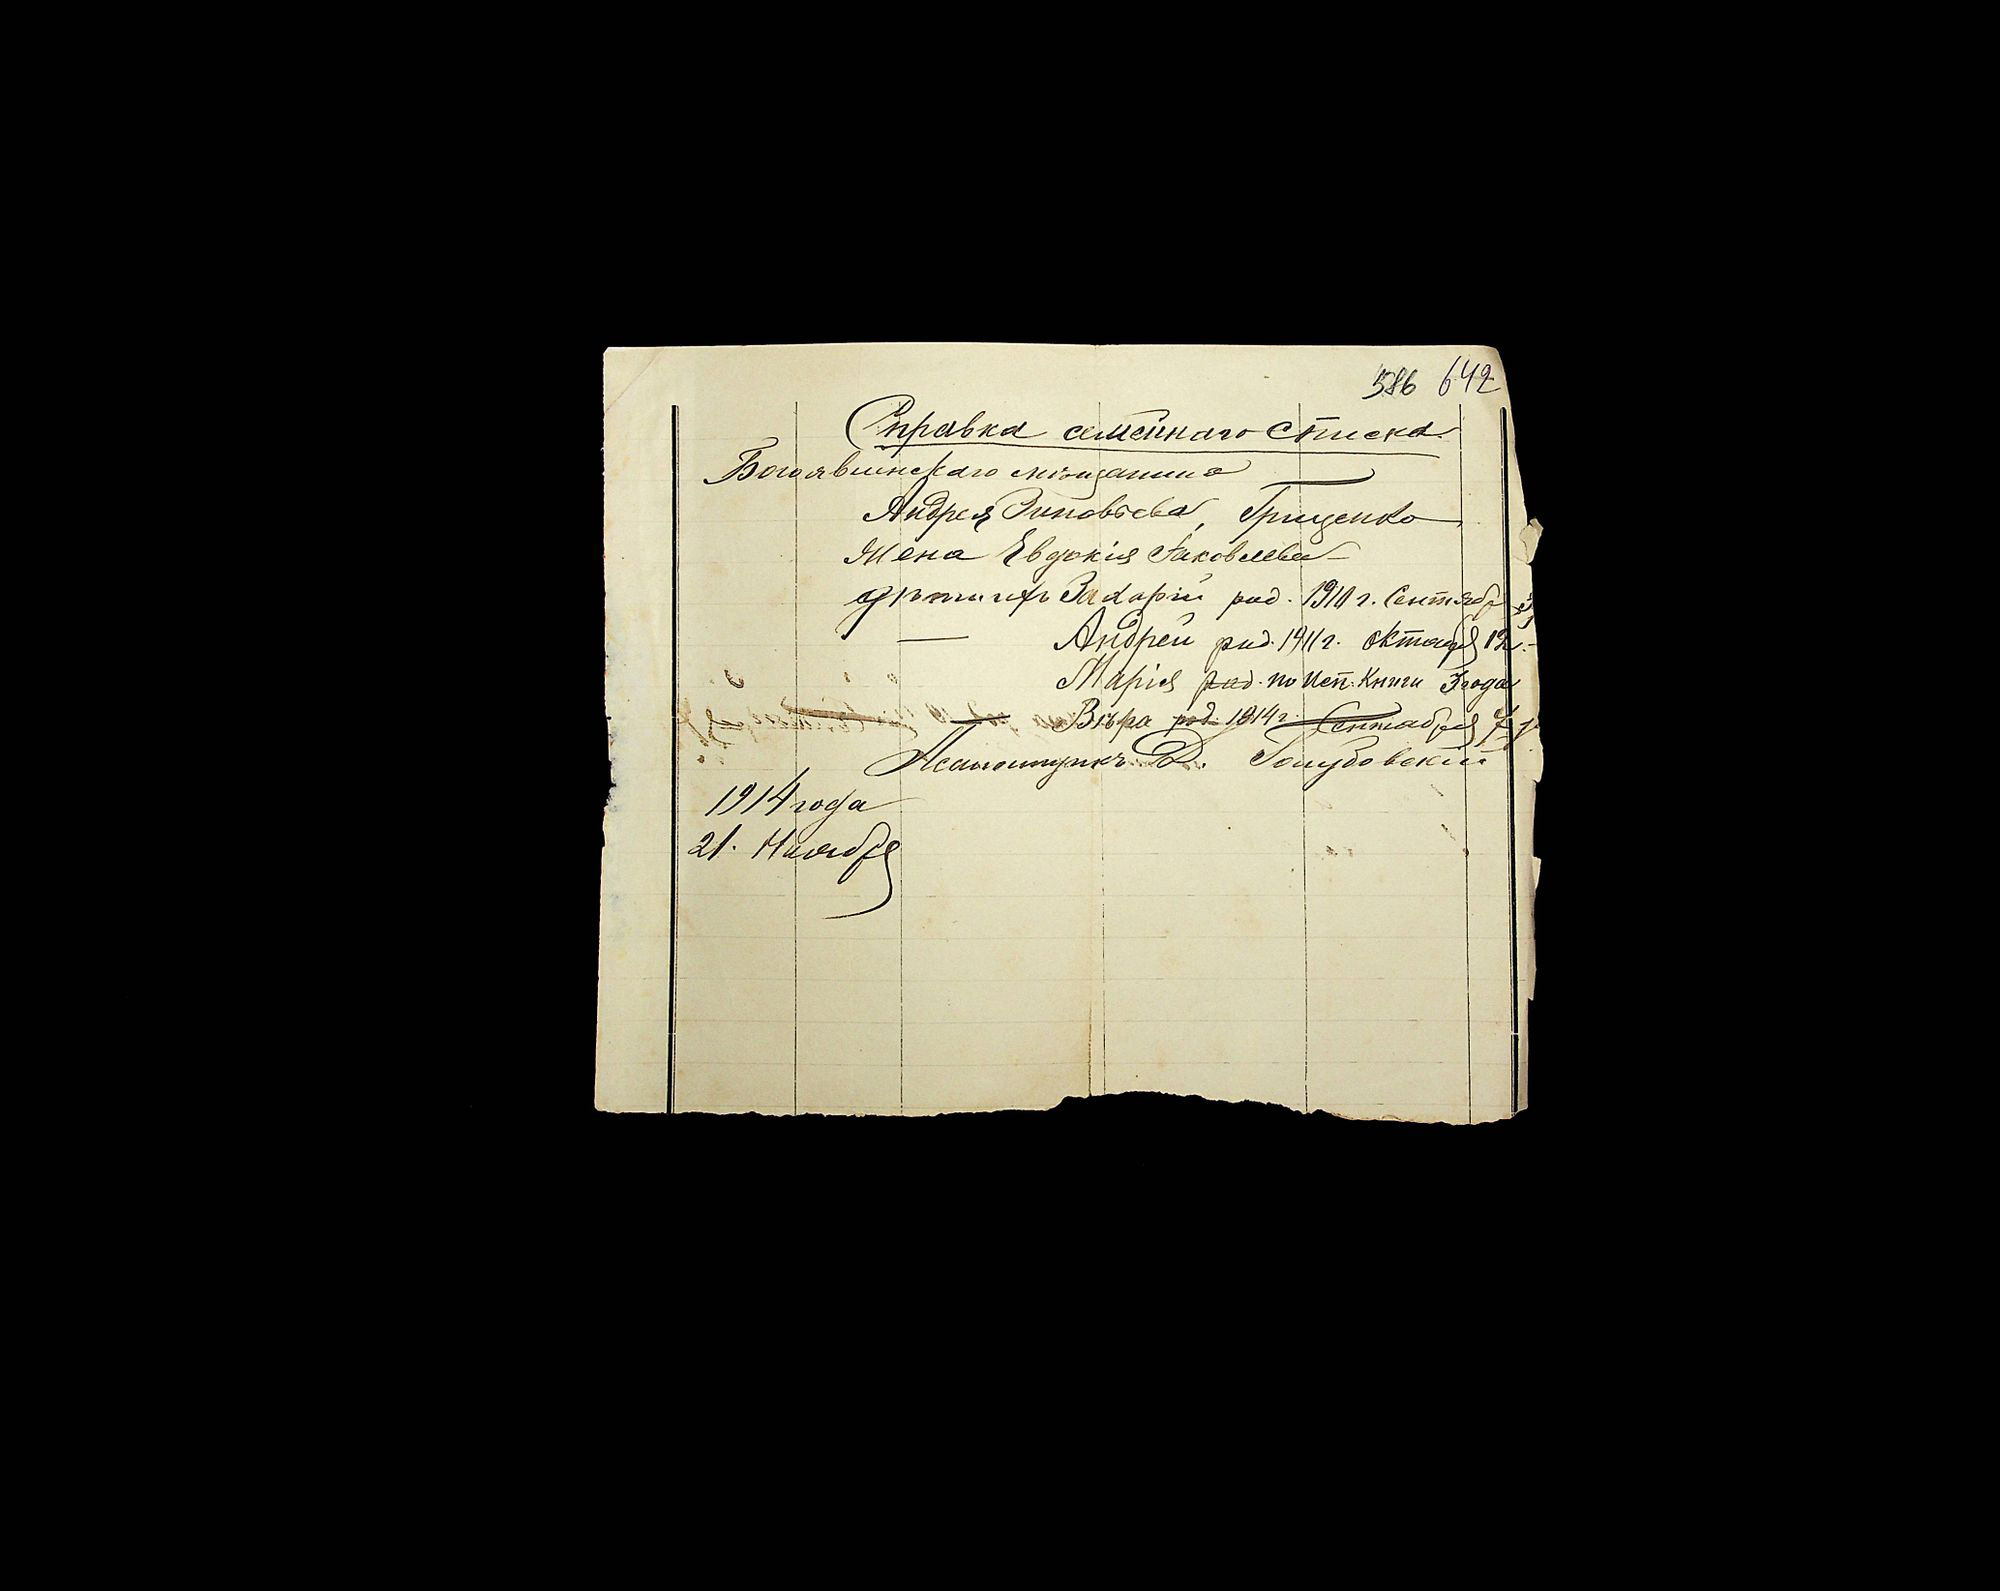 586 642
Справка семейнаго списка
Богоявленскаго мѣщанина
Андрея Зиновьева, Грищенко
Жена Евдокія Яковлева —
дѣти ихъ Захарій род. 1910 г. Сентябр
— Андрей род. 1911 г. октябр 19
Марія род. по Исп. Книги 3 года
— Вѣра род. 1914 г. Сентября 7
Псаломщикъ Д. Голубовскій
1914 года
21. Ноября